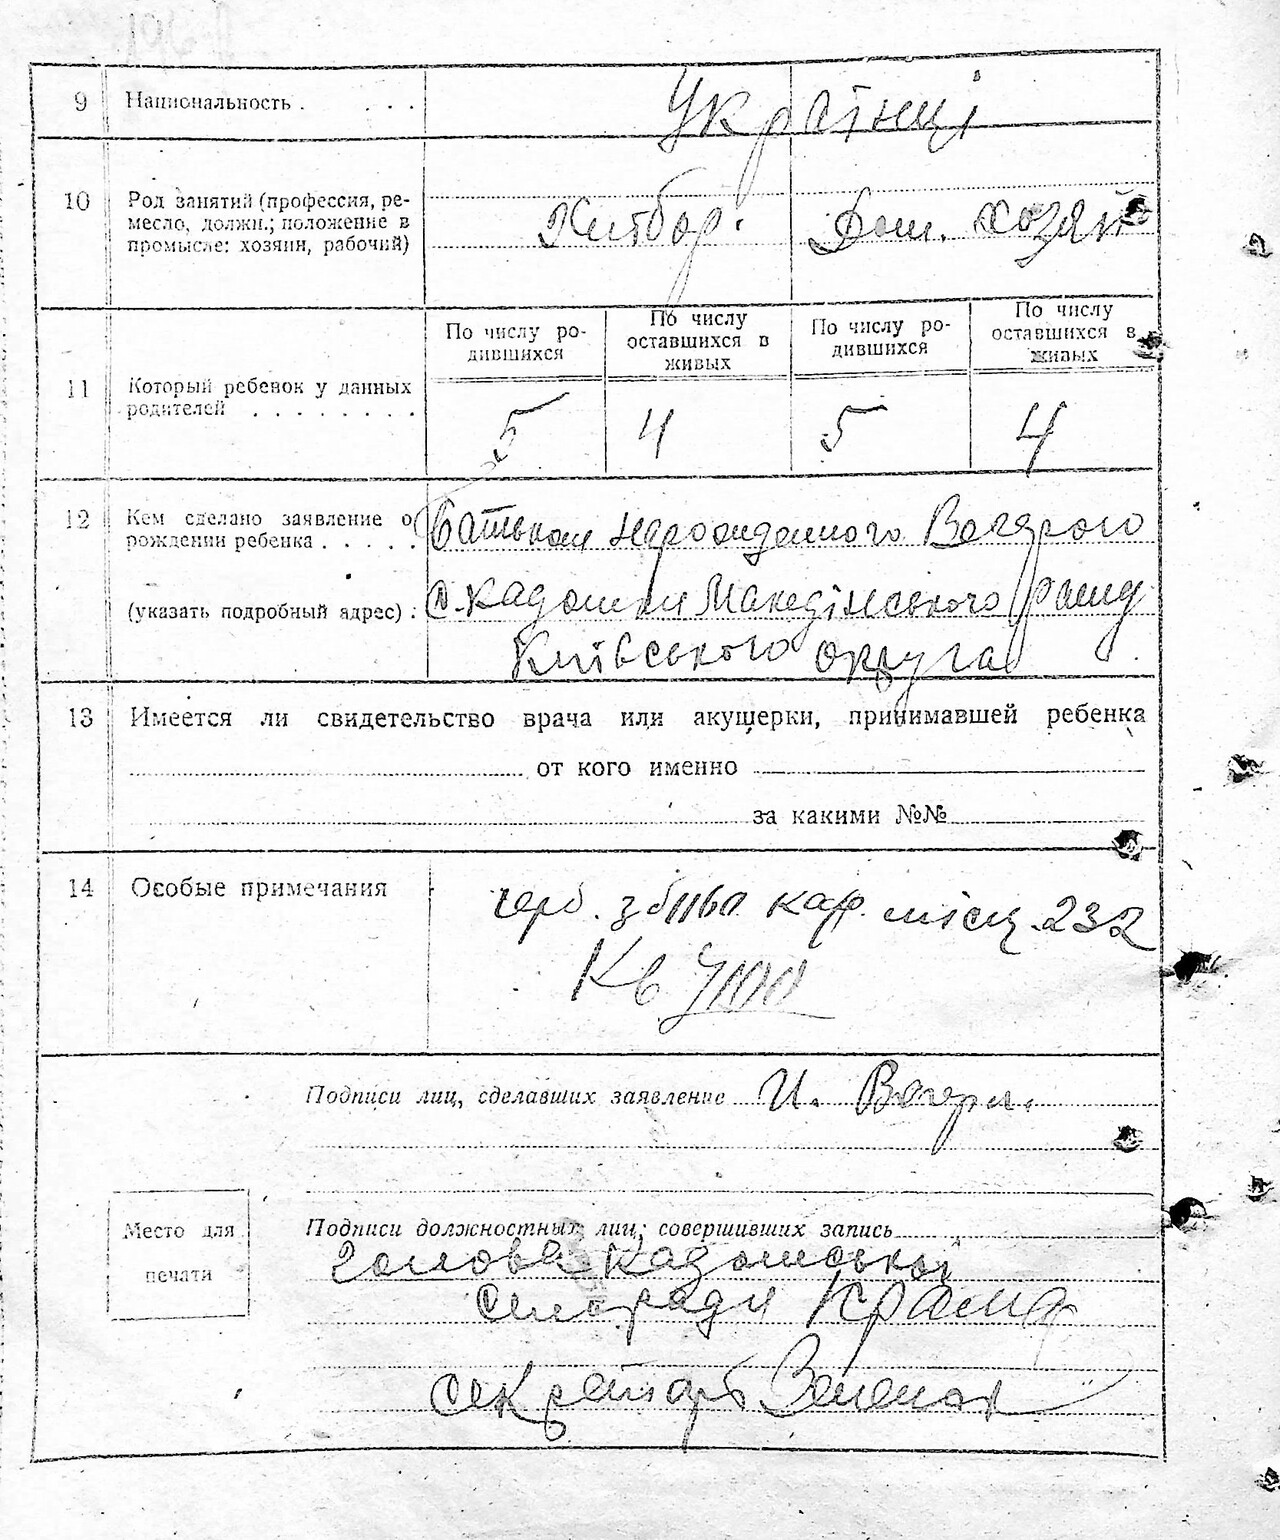 9 Национальность . . . . Українці
10 Род занятий (профессия, ре-
месло, должн.; положение в
промысле: хозяин, рабочий)
Хлібор. Дом. хозяй
По числу ро-
дившихся
По числу
оставшихся в
живых
По числу ро-
дившихся
По числу
оставшихся в
живых
11 Который ребенок у данных
родителей . . . . . . . .
5 4 5 4
12 Кем сделано заявление о
рождении ребенка . . . . .
(указать подробный адрес) :
батьком народженного
с. Кадомки
Київського округа
13 Имеется ли свидетельство врача или акушерки, принимавшей ребенка
от кого именно
за какими №№
14 Особые примечания
місц. 232
Кв
Подписи лиц, сделавших заявление И.
Место для
печати
Подписи должностных лиц, совершивших запись
Голова Кадомської
сельради
секретарь